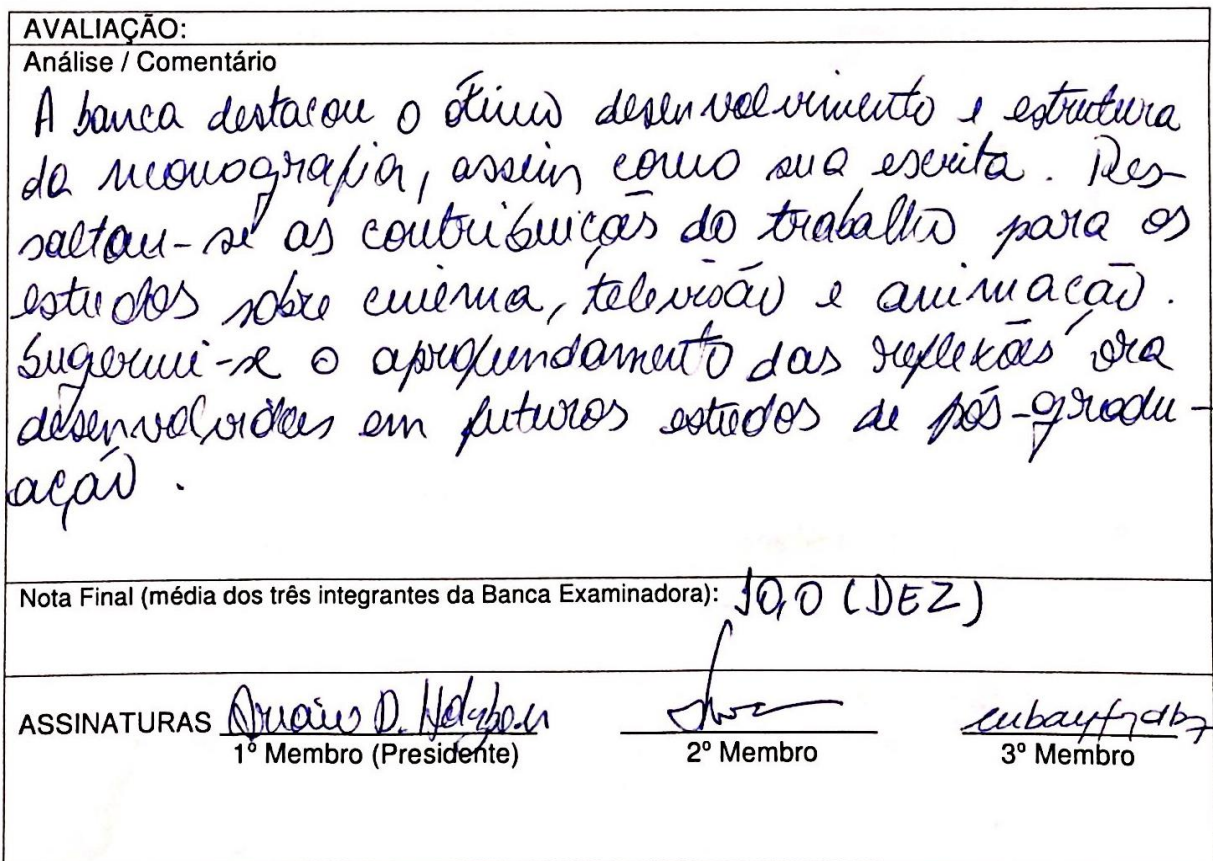 AVALIAÇÃO:
Análise / Comentário
A banca destacou o ótimo desenvolvimento e estrutura
da monografia, assim como sua escrita. Res-
saltou-se as contribuições do trabalho para os
estudos sobre cinema, televisão e animação.
Sugeriu-se o aprofundamento das reflexões ora
desenvolvidas em futuros estudos de pós-gradu-
ação.
Nota Final (média dos três integrantes da Banca Examinadora): 10,0 (DEZ)
ASSINATURAS
1º Membro (Presidente) 2º Membro 3º Membro